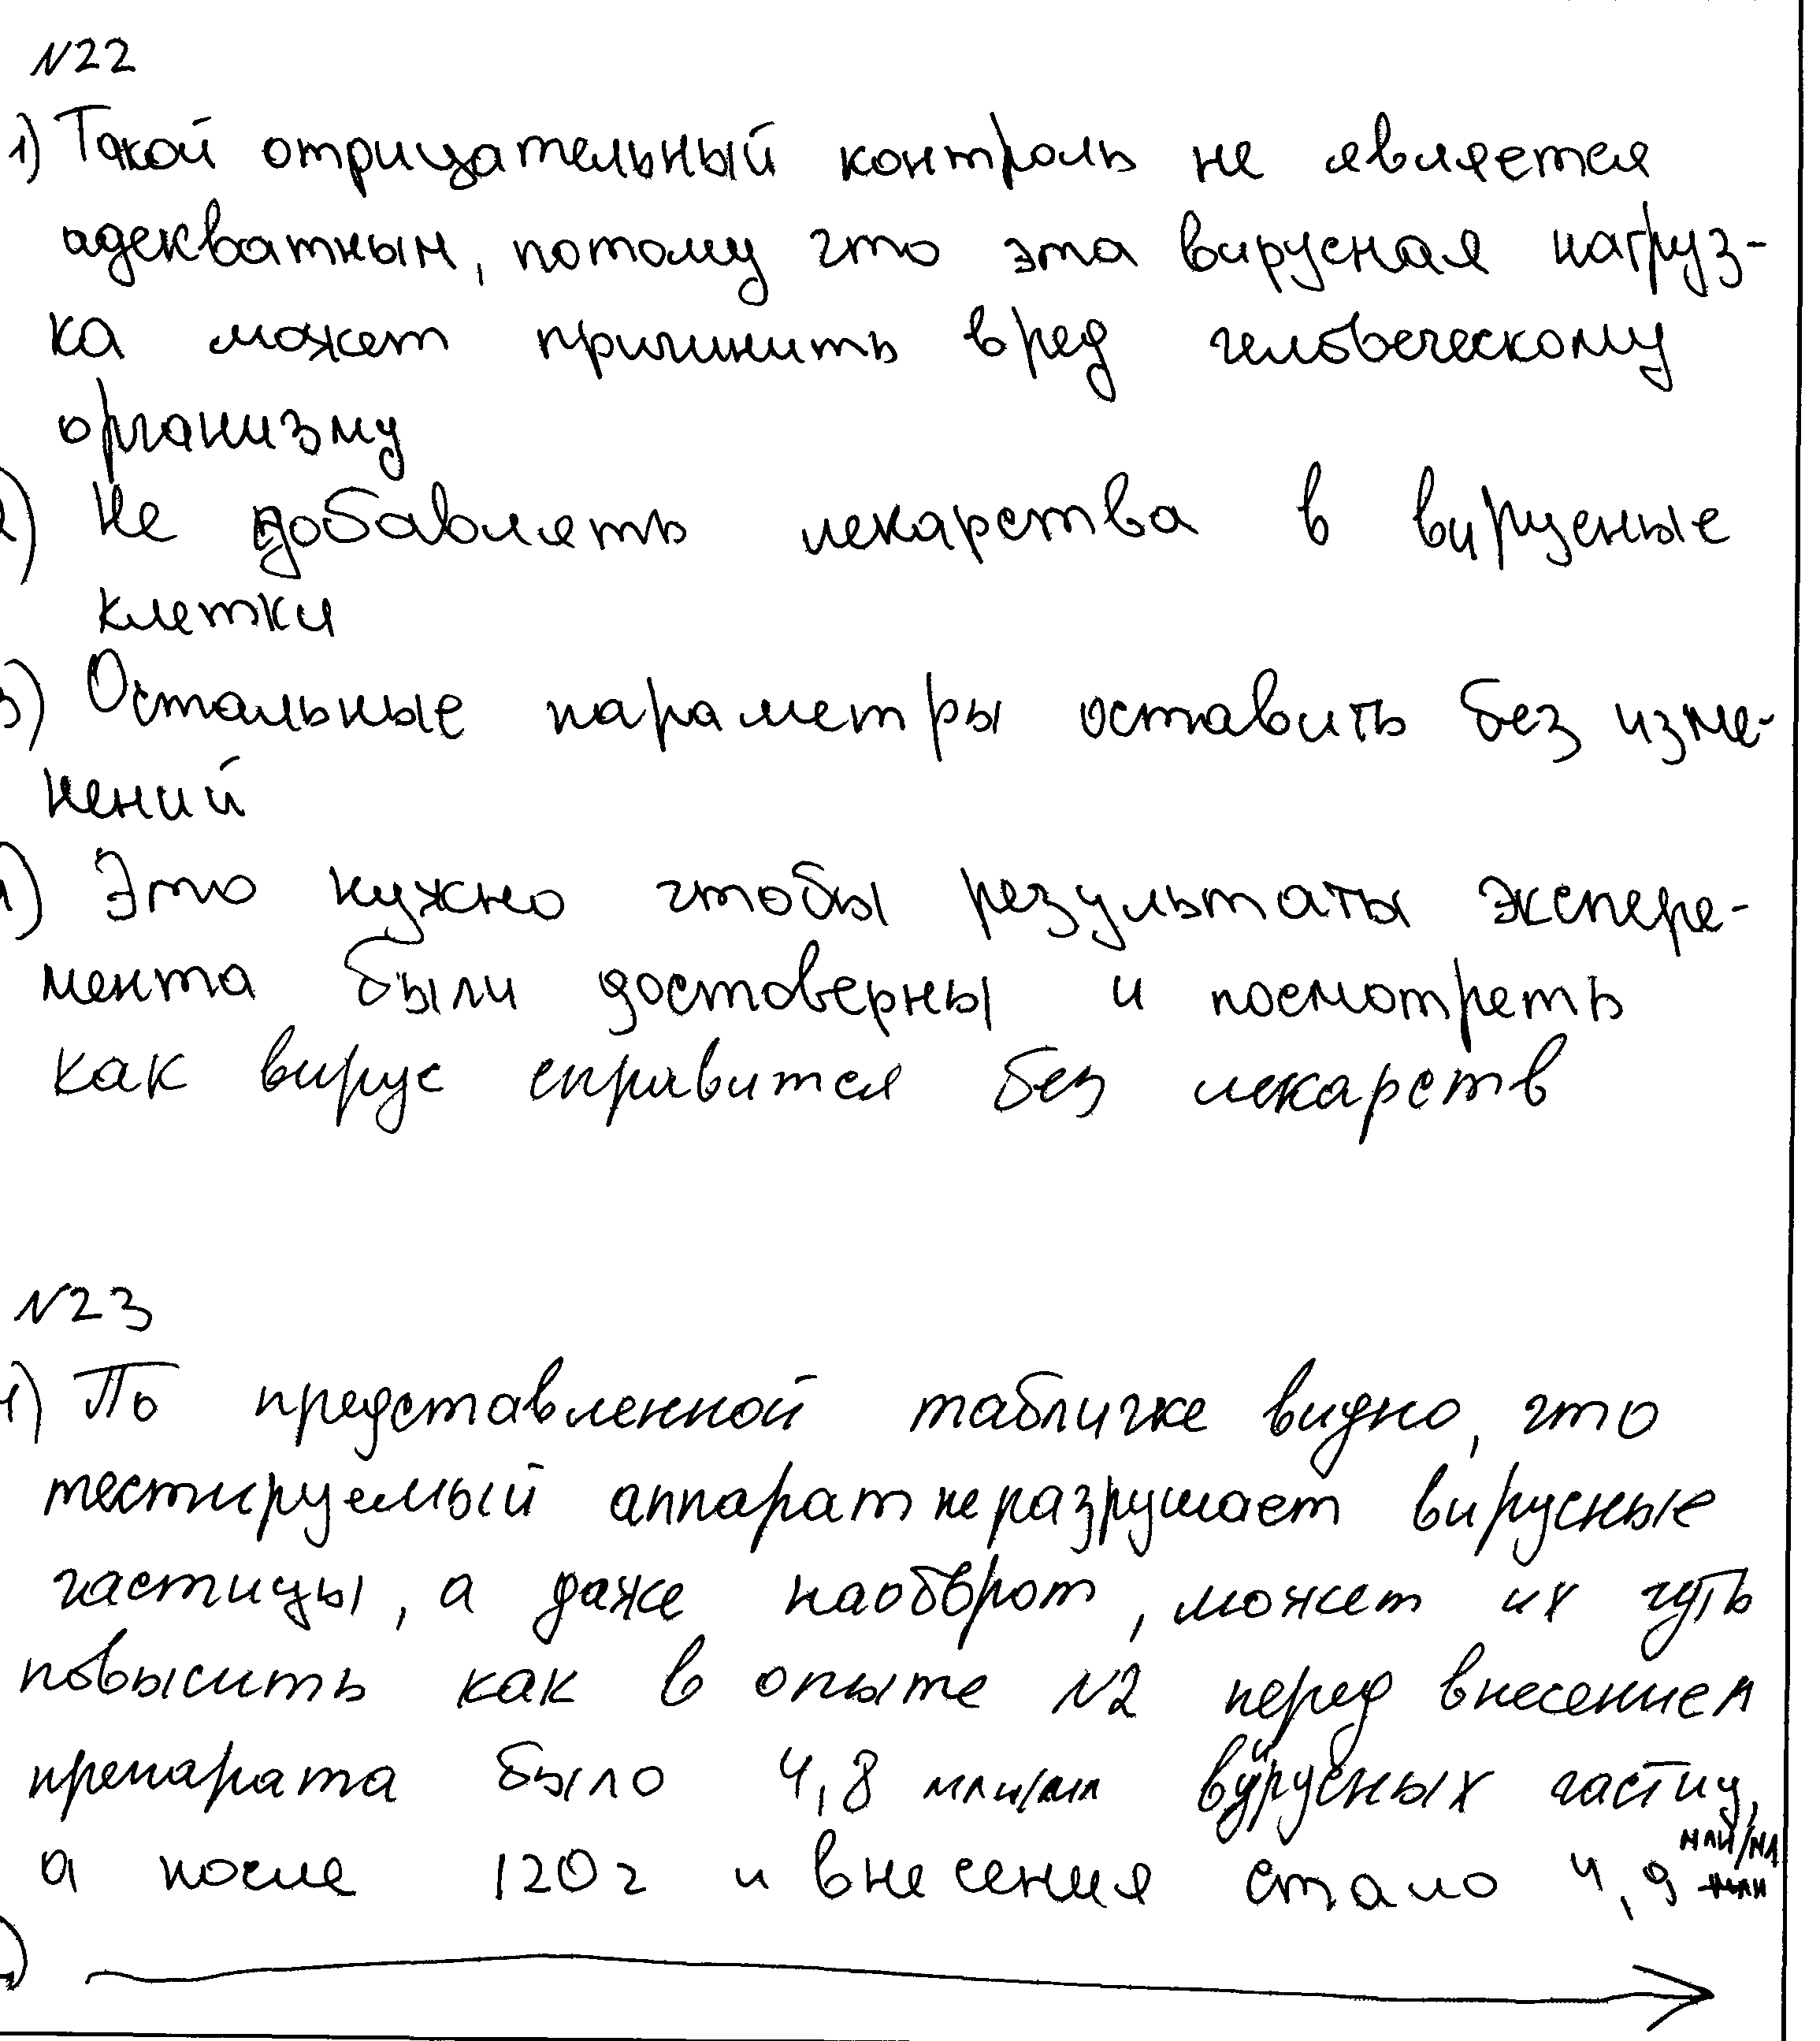 №22
1) Такой отрицательный контроль не является
адекватным, потому что эта вирусная нагруз-
ка может причинить вред человеческому
организму
2) Не добавлять лекарства в вирусные
клетки
3) Остальные параметры оставить без изме-
нений
4) Это нужно чтобы результаты экспере-
мента были достоверны и посмотреть
как вирус справится без лекарств
№23
1) По представленной табличке видно, что
тестируемый аппарат не разрушает вирусные
частицы, а даже наоборот, может их чуть
повысить как в опыте №2 перед внесением
препарата было 4,8 млн/мл вирусных частиц,
а после 120 г и внесения стало 4,9 млн/мл
2)